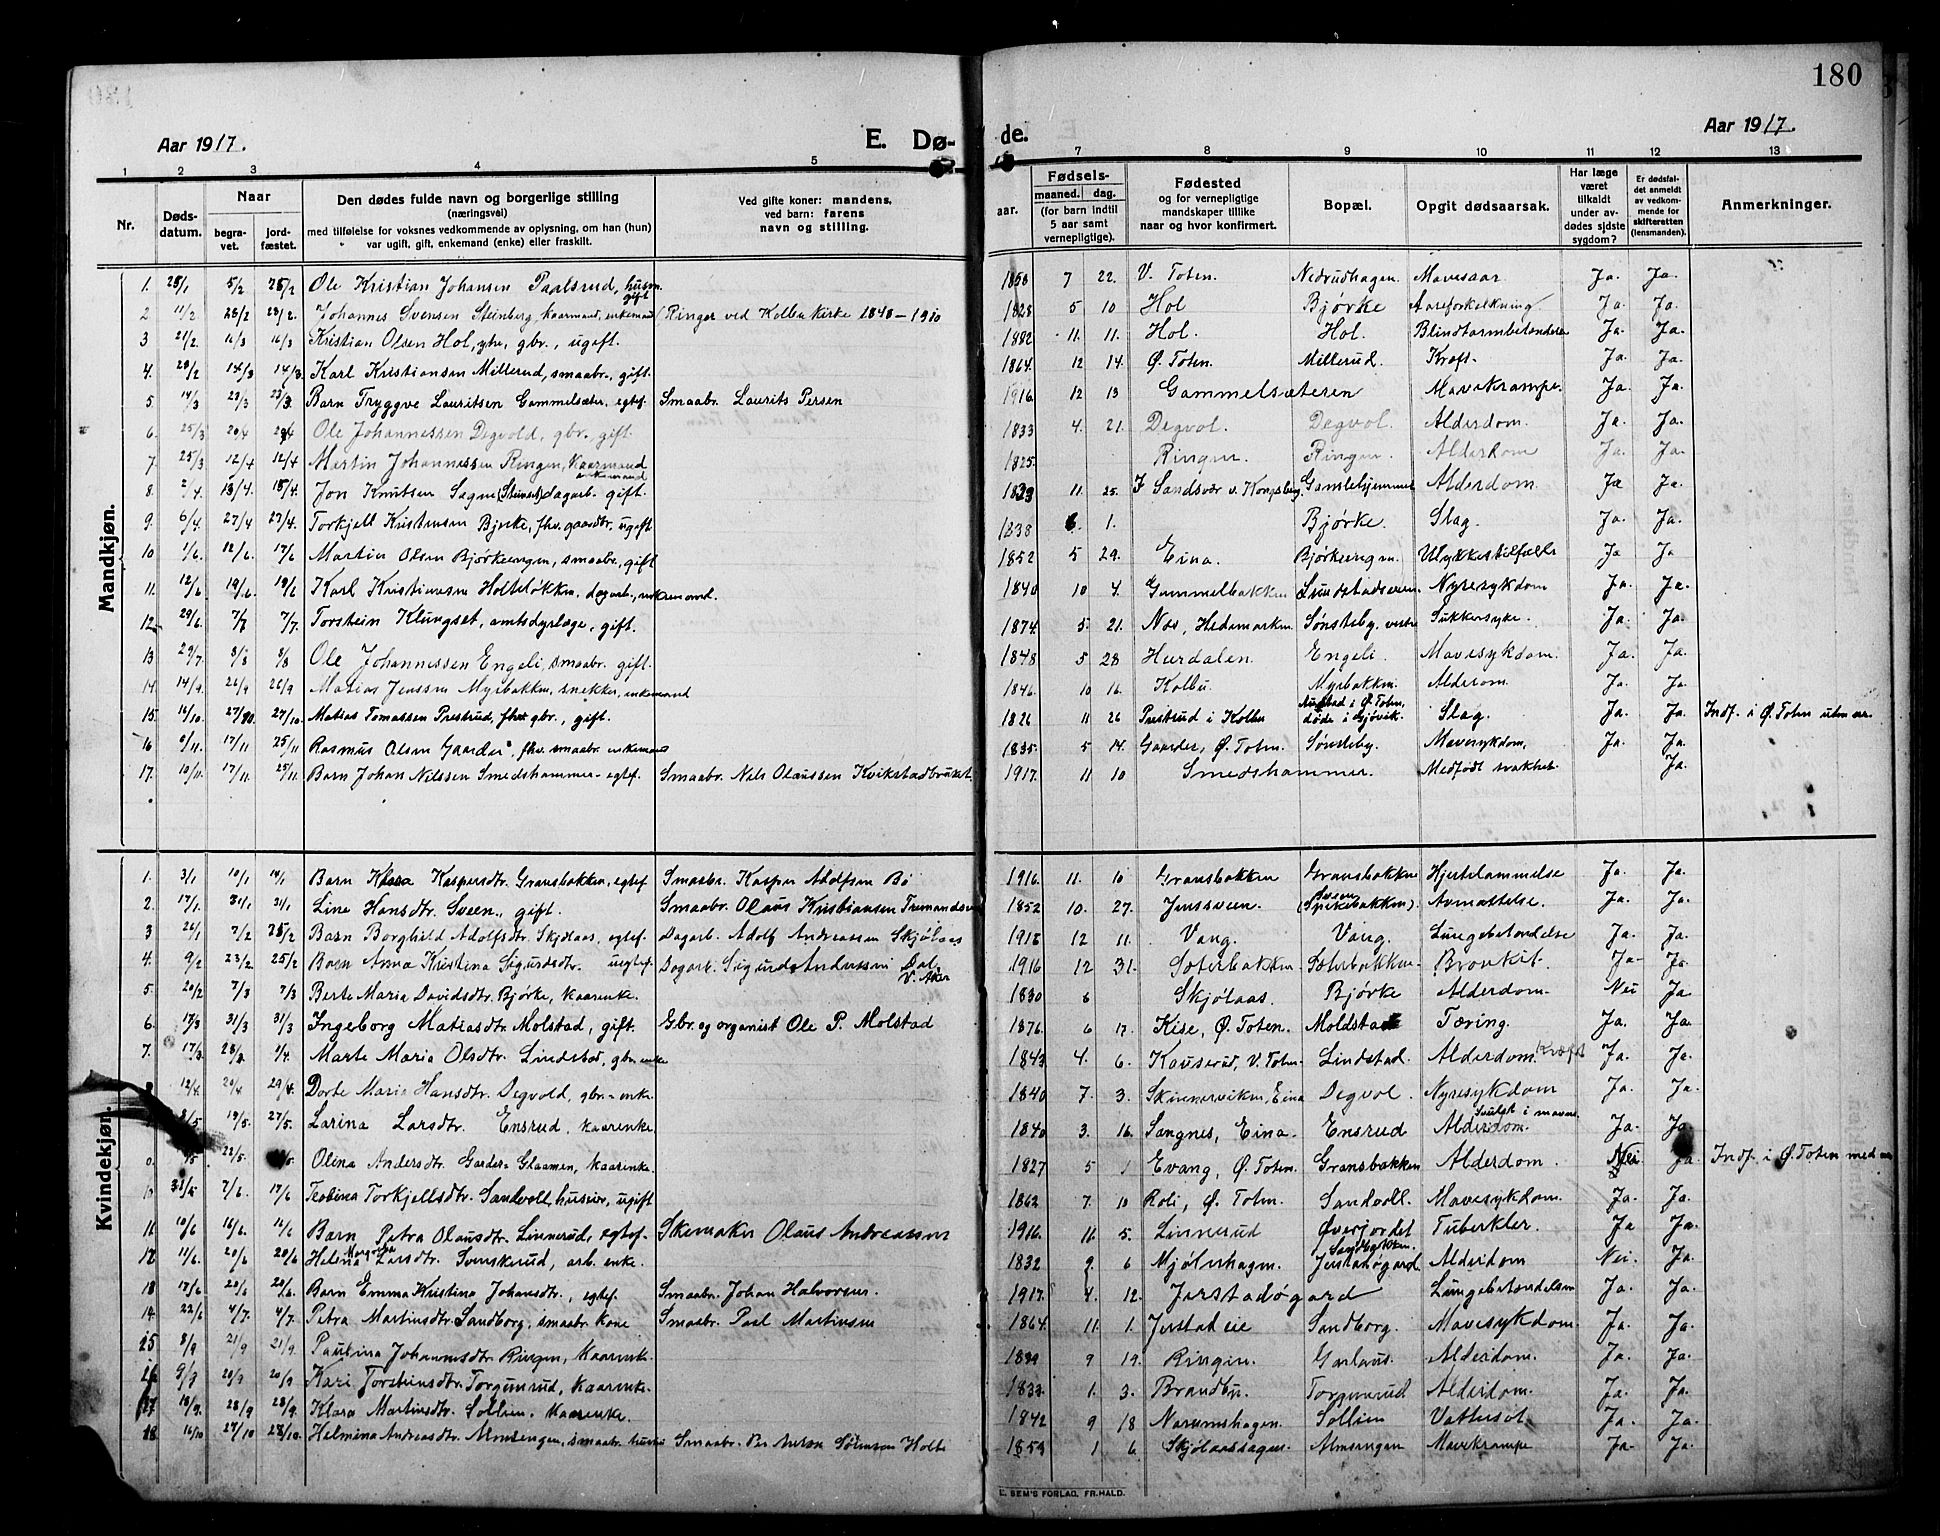 180
Aar 1917.
E. Dø-
de.
Aar 1917.
1 2 3 4 5 7 8 9 10 11 12 13
Nr.
Døds-
datum.
Naar
begra-
vet.
jord-
fæstet.
Den dødes fulde navn og borgerlige stilling
(næringsvei)
med tilføielse for voksnes vedkommende av oplysning, om han (hun)
var ugift, gift, enkemand (enke) eller fraskilt.
Ved gifte koner: mandens,
ved barn: farens
navn og stilling.
aar.
Fødsels-
maaned. dag.
(for barn indtil
5 aar samt
vernepligtige).
Fødested
og for vernepligtige
mandskaper tillike
naar og hvor konfirmert.
Bopæl.
Opgit dødsaarsak.
Har læge
været
tilkaldt
under av-
dødes sjdste
sygdom?
Er dødsfal-
det anmeldt
av vedkom-
mende for
skifteretten
(lensmanden).
Anmerkninger.
Mandkjøn.
1. 5/2 Ole Kristian Johansen Paalsrud, husm. gift 7 22. V. Toten. Nedrudhagen. Mavesaar Ja. Ja.
2 11/2 23/2 23/2. Johannes Svensen Steinberg, kaarmand, enkemand (Ringer ved Kolbu kirke 1848-1910 1828 5 10 Hol Bjørke Aareforkalkning Ja Ja.
3 21/2 16/3 16/3 Kristian Olsen Hol, gbr., ugift. 1882 11. 11. Hol. Hol. Blindtarmbetændelse Ja. Ja.
4. 28/2 14/3 14/3. Karl Kristiansen Millerud, smaabr., gift. 1864. 12 14. Ø. Toten. Millerud. Kræft. Ja. Ja.
5. 14/3 23/3 23/3. Barn Tryggve Lauritsen Gammelsæter, egtef. Smaabr. Laurits Persen 1916. 12 13 Gammelsæteren Mavekrampe. Ja. Ja.
6. 25/3 20/4 Ole Johannessen Degvold, gbr., gift. 1833 4. 21. Degvol. Degvol. Alderdom. Ja. Ja.
7. 25/3 12/4 12/4. Martin Johannessen Ringen, kaarmand enkemand 1825. Ringen. Ringen. Alderdom Ja. Ja.
8. 2/4. 13/4. 15/4. Jon Knutsen Sogn (Steinset) dagarb. gift. 11. 25. Sandsvær v. Kongsberg. Gamlehjemmet Alderdom. Ja Ja.
9. 6/4. 27/4 27/4. Torkjell Kristensen Bjørke, fhv. gaardbr. ugift. 1838 6 1. Bjørke. Slag. Ja. Ja.
10. 1/6. 12/6. 17/6 Martin Olsen Bjørkeengen, smaabr., gift 1852 5 29. Eina. Bjørkeengen. Ulykkestilfælle Ja Ja
11. 12/6 19/6. 19/6 Karl Kristiansen Holteløkken, dagarb., enkemand. 1840 10 4. Gammelbakken Lundstadseien. Nyresykdom Ja. Ja.
12. 29/6. 7/7 7/7. Torstein Klungset, amtsdyrlæge, gift. 1874. 5. 21. Næs, Hedemarken. Sønsteby, vestre Sukkersyke. Ja. Ja.
13 29/7. 8/8 8/8 Ole Johannessen Engeli, smaabr., gift. 1848 5 28 Hurdalen. Engeli. Mavesykdom. Ja. Ja.
14. 14/9. 26/9 26/9 Matias Jenssen Myrbakken, snekker, enkemand 1846. 10 16. Kolbu. Myrbakken. Alderdom. Ja. Ja.
15. 14/10. 27/10. 27/10. Matias Tomassen Prestrud, fhv. gbr., gift. 1826 11 26 Prestrud i Kolbu Austad i Ø. Toten, døde i Gjøvik. Slag. Ja. Ja. Indf. i Ø. Toten uten nr.
16 17/11 25/11 Rasmus Olsen Gaarder, fhv. smaabr. enkemand 1835. 5 14. Gaarder, Ø. Toten. Sønsteby. Mavesykdom. Ja. Ja.
17. 10/11. 17/11. 25/11. Barn Johan Nilssen Smedshammer- egtef. Smaabr. Nils Olaussen Kvikstadbruket 1917. 11 10 Smedshammer. Medfødt svakhet. Ja.
Kvindekjøn.
1. 3/1 10/1 14/1 Barn Klara Kaspersdtr. Gransbakken, egtef. Smaabr. Kasper Adolfsen Bø 1916. 11. 10 Gransbakken Gransbakken Hjertelammelse Ja. Ja.
2. 17/1. 31/1 31/1. Line Hansdtr. Sveen, gift. Smaabr. Olaus Kristiansen 1852 10. 27. Jensveen. Sveen (Spikebakken). Avmattelse. Ja. Ja.
3 26/1 7/2 25/2 Barn Borghild Adolfsdtr. Skjølaas, egtef. Dagarb. Adolf Andreassen Skjølaas 12 11. Vang. Vang. Lungebetændelse Ja. Ja.
4. 9/2 23/2. 25/2 Barn Anna Kristina Sigurdsdtr. uegtef. Dagarb. Sigurd Anderssen Dal, V. Aker 1916 12 31. Sæterbakken Sæterbakken Bronkit. Ja- Ja.
5. 20/2 7/3 7/3 Berte Maria Davidsdtr. Bjørke, kaarenke. 1830 6 Skjølaas. Bjørke Alderdom. Nei Ja
6. 17/3 31/3 31/3 Ingeborg Matiasdtr. Molstad, gift. Gbr. og organist Ole P. Molstad 1876. 6 17. Kise, Ø. Toten. Moldstad Tæring. Ja. Ja.
7. 17/3. 28/3. 1/4. Marte Maria Olsdtr. Lindstad, gbr. enke 1843 4. 6. Kauserud, V. Toten. Lindstad. Alderdom (Kræft Ja. Ja.
12/4. 20/4 29/4. Dorte Maria Hansdtr. Degvold, gbr.- enke. 1840 7. 3. Skinnarviken, Eina Degvol. Nyresykdom Ja. Ja.
8/5. 19/5. 27/5. Larina Larsdtr. Ensrud, kaarenke. 1840 3. 16. Sangnes, Eina. Ensrud Alderdom. Svulst i maven. Ja. Ja
22/5. Olina Andersdtr. Garder- Glaamen, kaarenke. 1827 5 Evang, Ø. Toten. Gransbakken Alderdom. Nei Ja Indf. i Ø. Toten med nr
31/5 7/6. 17/6 Teolina Torkjellsdtr. Sandvoll, huseier, ugift 1862 7. 10 Roli, Ø. Toten. Sandvoll. Mavesykdom. Ja. Ja.
11 10/6 16/6. 16/6 Barn Petra Olausdtr. Linnerud, egtef. Skomaker Olaus Andreassen 1916 11. 5. Linnerud Øverjordet Tuberkler. Ja Ja.
12 11/6. 20/6 20/6 Helene Margrethe Larsdtr. Svenskerud, arb. enke. 1832 9. 6 Mjølnhagen. Sandbakken. Jerstadøgard. Alderdom Nei. Ja.
13 17/6. 28/6 28/6. Barn Emma Kristina Johansdtr., egtef. Smaabr. Johan Halvorsen. 1917. 4. 12. Jerstadøgard Lungebetændelse Ja. Ja.
14. 22/6 4/7. 4/7. Petra Martinsdtr. Sandborg, smaabr. kone Smaabr. Paal Martinsen 1864. 11. 1. Jerstadeie Sandborg. Mavesykdom Ja. Ja.
15 8/9 21/9 21/9. Paulina Johannesdtr. Ringen, kaarenke. 9 19. Ringen. Garlaus. Alderdom. Ja. Ja.
16 9/9 20/9 20/9 Kari Torstensdtr. Torgunrud, kaarenke. 1833. 1. 3. Brandbu. Torgunrud Alderdom. Ja. Ja.
17 18/9. 28/9 28/9. Klara Martinsdtr. Sollien. kaarenke. 1842 9 18 Narumshagen. Sollien Vattersot. Ja. Ja.
18. 16/10 27/10 28/10. Helmina Andreasdtr. Almsengen, smaabr. hustru Smaabr. Per Anton Sørensen Holte 1859 1 6 Skjølaashagen. Almsengen Mavekrampe Ja. Ja.
E. SEM'S FORLAG, FR.HALD.